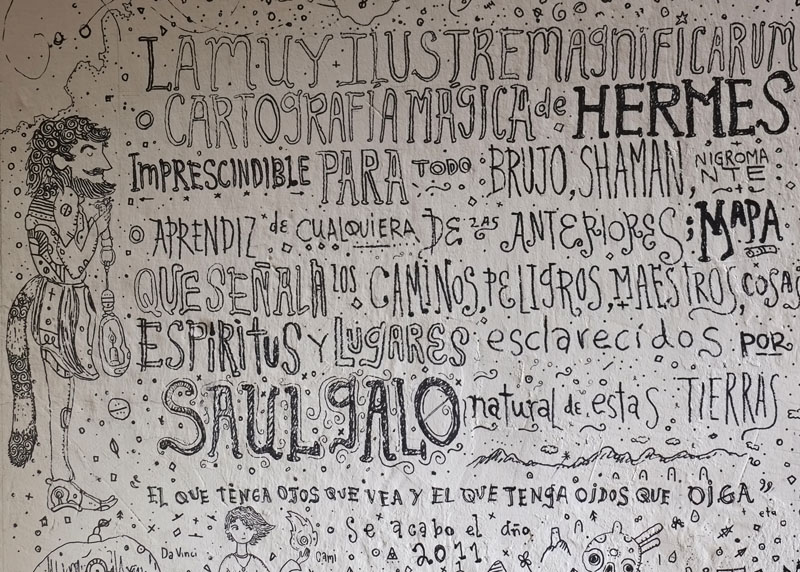 LA MUY ILUSTRE MAGNIFICARUM
CARTOGRAFÍA MÁGICA de HERMES
IMPRESCINDIBLE PARA TODO BRUJO, SHAMAN, NIGROMANTE
APRENDIZ de CUALQUIERA DE LAS ANTERIORES; MAPA
QUE SEÑALA LOS CAMINOS, PELIGROS, MAESTROS, COSAS
ESPIRITUS Y LUGARES esclarecidos POR
SAUL GALO natural de estas TIERRAS
"EL QUE TENGA OJOS QUE VEA Y EL QUE TENGA OIDOS QUE OIGA"
eta
Se acabo el dño
2011
Da Vinci
Cami